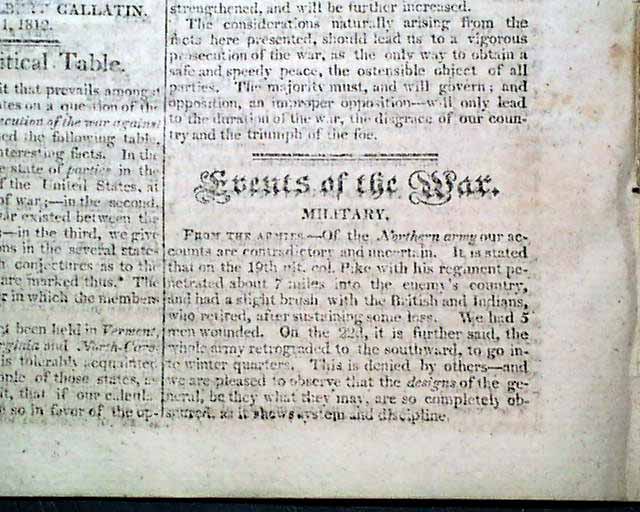 BERT GALLATIN.
1, 1812.
itical Table.
it that prevails amongst
ates on a question of the
ecution of the war against
ed the following table,
nteresting facts. In the
e state of parties in the
f the United States, at
of war;—in the second,
ar existed between the
s—in the third, we give
ons in the several state-
h conjectures as to the
are marked thus.* The
er in which the members
ot been held in Vermont,
rginia and North-Caro-
is tolerably acquainted
ople of those states, as
it, that if our calcula-
e so in favor of the op-
strengthened, and will be further increased.
The considerations naturally arising from the
facts here presented, should lead us to a vigorous
prosecution of the war, as the only way to obtain a
safe and speedy peace, the ostensible object of all
parties. The majority must, and will govern; and
opposition, an improper opposition—will only lead
to the duration of the war, the disgrace of our coun-
try and the triumph of the foe.
Events of the War.
MILITARY.
FROM THE ARMIES.—Of the Northern army our ac-
counts are contradictory and uncertain. It is stated
that on the 19th ult. col. Pike with his regiment pe-
netrated about 7 miles into the enemy's country,
and had a slight brush with the British and Indians,
who retired, after sustaining some loss. We had 5
men wounded. On the 22d, it is further said, the
whole army retrograded to the southward, to go in-
to winter quarters. This is denied by others—and
we are pleased to observe that the designs of the ge-
neral, be they what they may, are so completely ob-
scured, as it shows system and discipline.